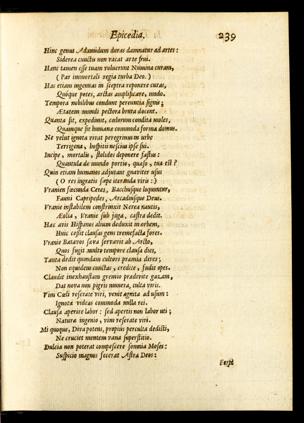 Epicedia. 239
Hinc genus Adamidum duras damnatur ad artes:
Siderea cunctis non vacat arte frui.
Hanc tamen esse suam voluerunt Numina curam,
( Par immortali regia turba Deo. )
Has etiam ingenuas in sceptra reponere curas,
Quisque potes, arctas amplificare, modo.
Tempora nobilibus condunt pereuntia signis;
Ætatem mundi pectora bruta docent.
Quanta sit, expediunt, cœlorum condita moles,
Quamque sit humana commoda forma domus.
Ne velut ignota vivat peregrinus in urbe
Terrigena, hospitii nescius ipse sui.
Incipe, mortalis, stolidos deponere fastus:
Quantula de mundo portio, quæso, tua est?
Quin etiam humanos adjutant gnaviter usus
( O res ingratis sæpe iteranda viris: )
Vranien facunda Ceres, Bacchusque loquuntur,
Fauni Capripedes, Arcadiusque Deus.
Vranie instabilem constrinxit Nerea nautis,
Æolia, Vranie sub juga, castra dedit.
Hac avis Hispanus alium deduxit in orbem,
Huic cessit clausas gens tremefacta fores.
Vranie Batavos sæva servavit ab Arcto,
Quos fugit multo tempore clausa dies.
Tanta dedit quondam cultori præmia dives;
Non ejusdem cunctas, credite, fudit opes.
Claudit inexhaustam gremio prædivite gazam,
Dat nova non pigris munera, culta viris.
Vim Cœli reserate viri, venit agnita ad usum:
Ignota vidcas commoda nulla rei.
Clausa aperire labor: sed apertis non labor uti;
Natura ingenio, vim reserate viri.
Mi quoque, Diva potens, propius perculta dedisti,
Ne cruciet mentem vana superstitio.
Dulcia non poterat compescere somnia Moses:
Suspicio magnos fecerat Astra Deos: